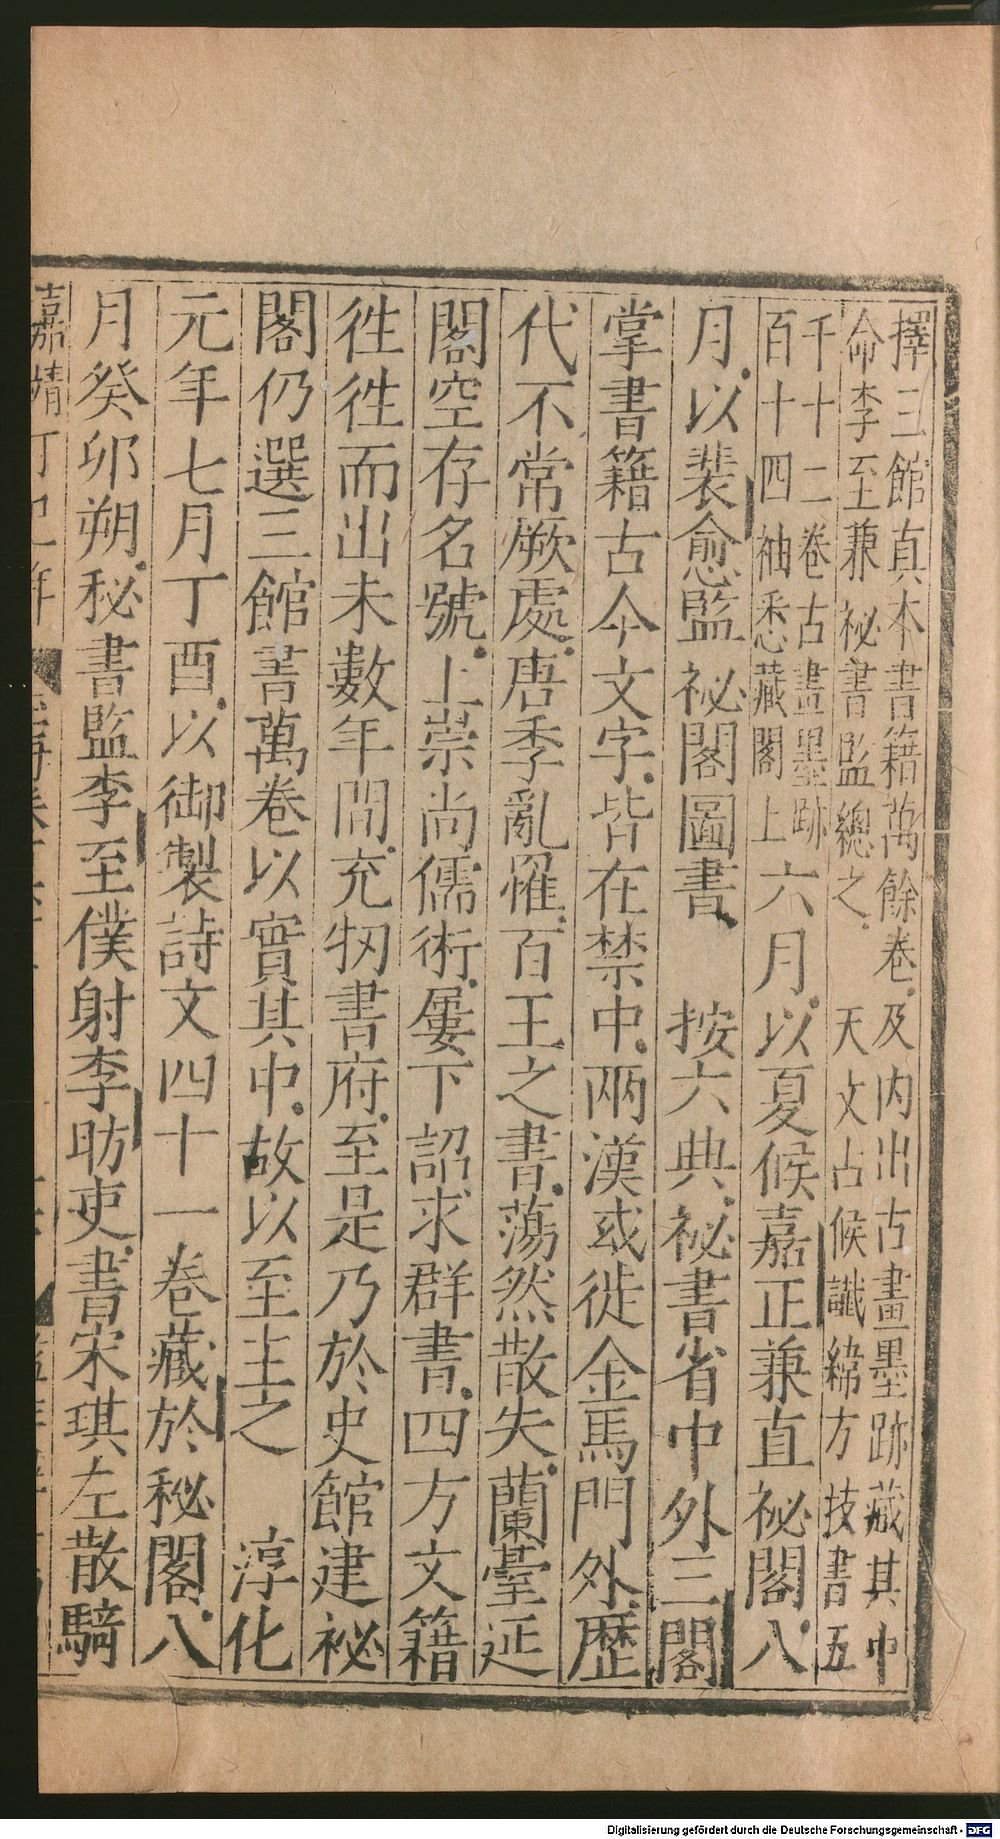 擇三館真本書籍萬餘卷及内出古畫墨跡藏其中
命李至兼祕書監總之　天文占候讖緯方技書五
千十二卷古畫墨跡
百十四袖悉藏閣上六月以夏候嘉正兼直祕閣八
月以裴愈監祕閣圖書　按六典祕書省中外三閣
掌書籍古今文字皆在禁中兩漢或徙金馬門外歷
代不常厥處唐季亂罹百王之書蕩然散失蘭臺延
閣空存名號上崇尚儒術屢下詔求群書四方文籍
徃徃而出未數年間充牣書府至是乃於史館建祕
閣仍選三館書萬卷以實其中故以至主之　淳化
元年七月丁酉以御製詩文四十一卷藏於秘閣八
月癸卯朔秘書監李至僕射李昉吏書宋琪左散騎
嘉靖丁巳年
Digitalisierung gefördert durch die Deutsche Forschungsgemeinschaft - DFG